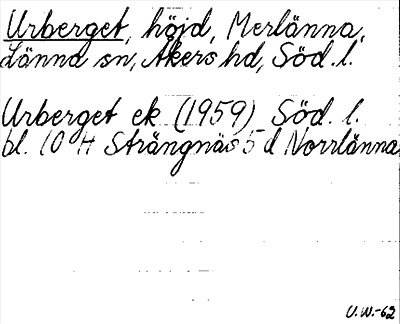 Urberget, höjd, Merlänna,
Länna sn, Åkers hd, Söd. l.
Urberget ek. (1959) Söd. l.
bl. 10 H Strängnäs 5 d Norrlänna
U.W.-62